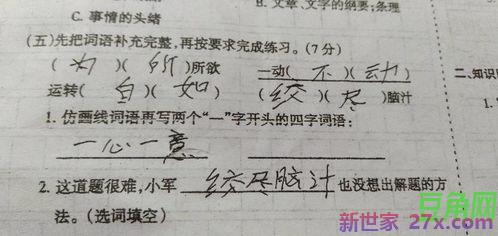 C. 事情的头绪
B. 文章、文字的纲要;条理
(五)先把词语补充完整,再按要求完成练习。(7分)
( 为 )( 所 )所欲 一动( 不 )( 动 )
运转( 自 )( 如 ) ( 绞 )( 尽 )脑汁
二、知识
1. 仿画线词语再写两个“一”字开头的四字词语:
1.
一心一意
2. 这道题很难,小军 绞尽脑汁 也没想出解题的方
法。(选词填空)
豆角网
新世家 27x.com